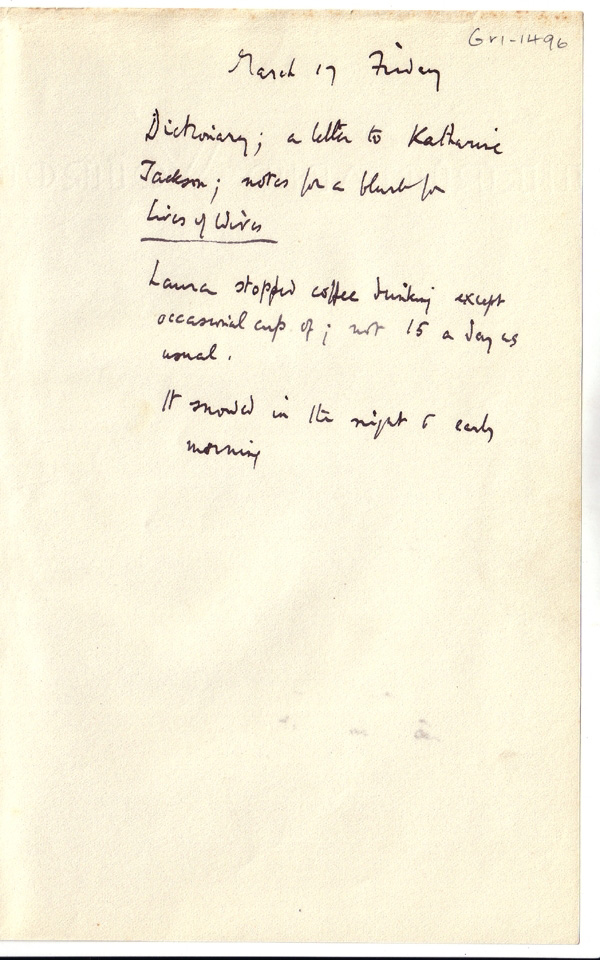 Gr1-1496
March 17 Friday
Dictionary; a letter to Katharine
Jackson; notes for a blurb for
Lives of Wives
Laura stopped coffee drinking except
occasional cup of; not 15 a day as
usual.
It snowed in the night & early
morning